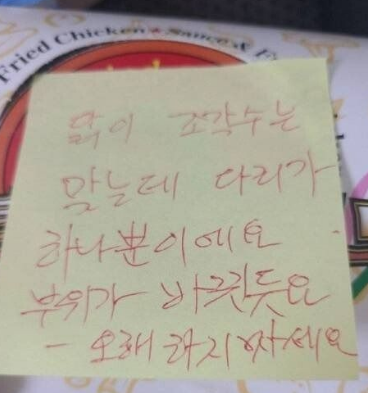 Fried Chicken ★ Sauce & F
닭이 조각수는
맞는데 다리가
하나뿐이에요
부위가 바뀐듯요
- 오해하지마세요